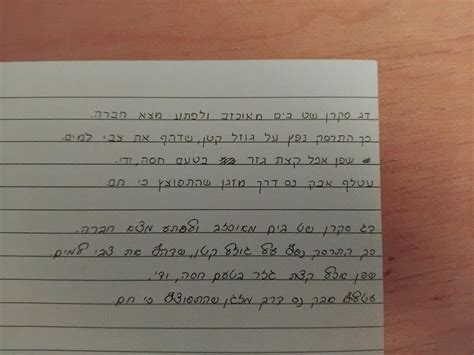 דג סקרן שט בים מאוכזב ולפתע מצא חברה.
כך התרסק נפץ על גוזל קטן, שדחף את צבי למים.
שפן אכל קצת גזר בטעם חסה, ודי.
עטלף אבק נס דרך מזגן שהתפוצץ כי חם
דג סקרן שט בים מאוכזב ולפתע מצא חברה.
כך התרסק נפץ על גוזל קטן, שדחף את צבי למים.
שפן אכל קצת גזר בטעם חסה, ודי.
עטלף אבק נס דרך מזגן שהתפוצץ כי חם